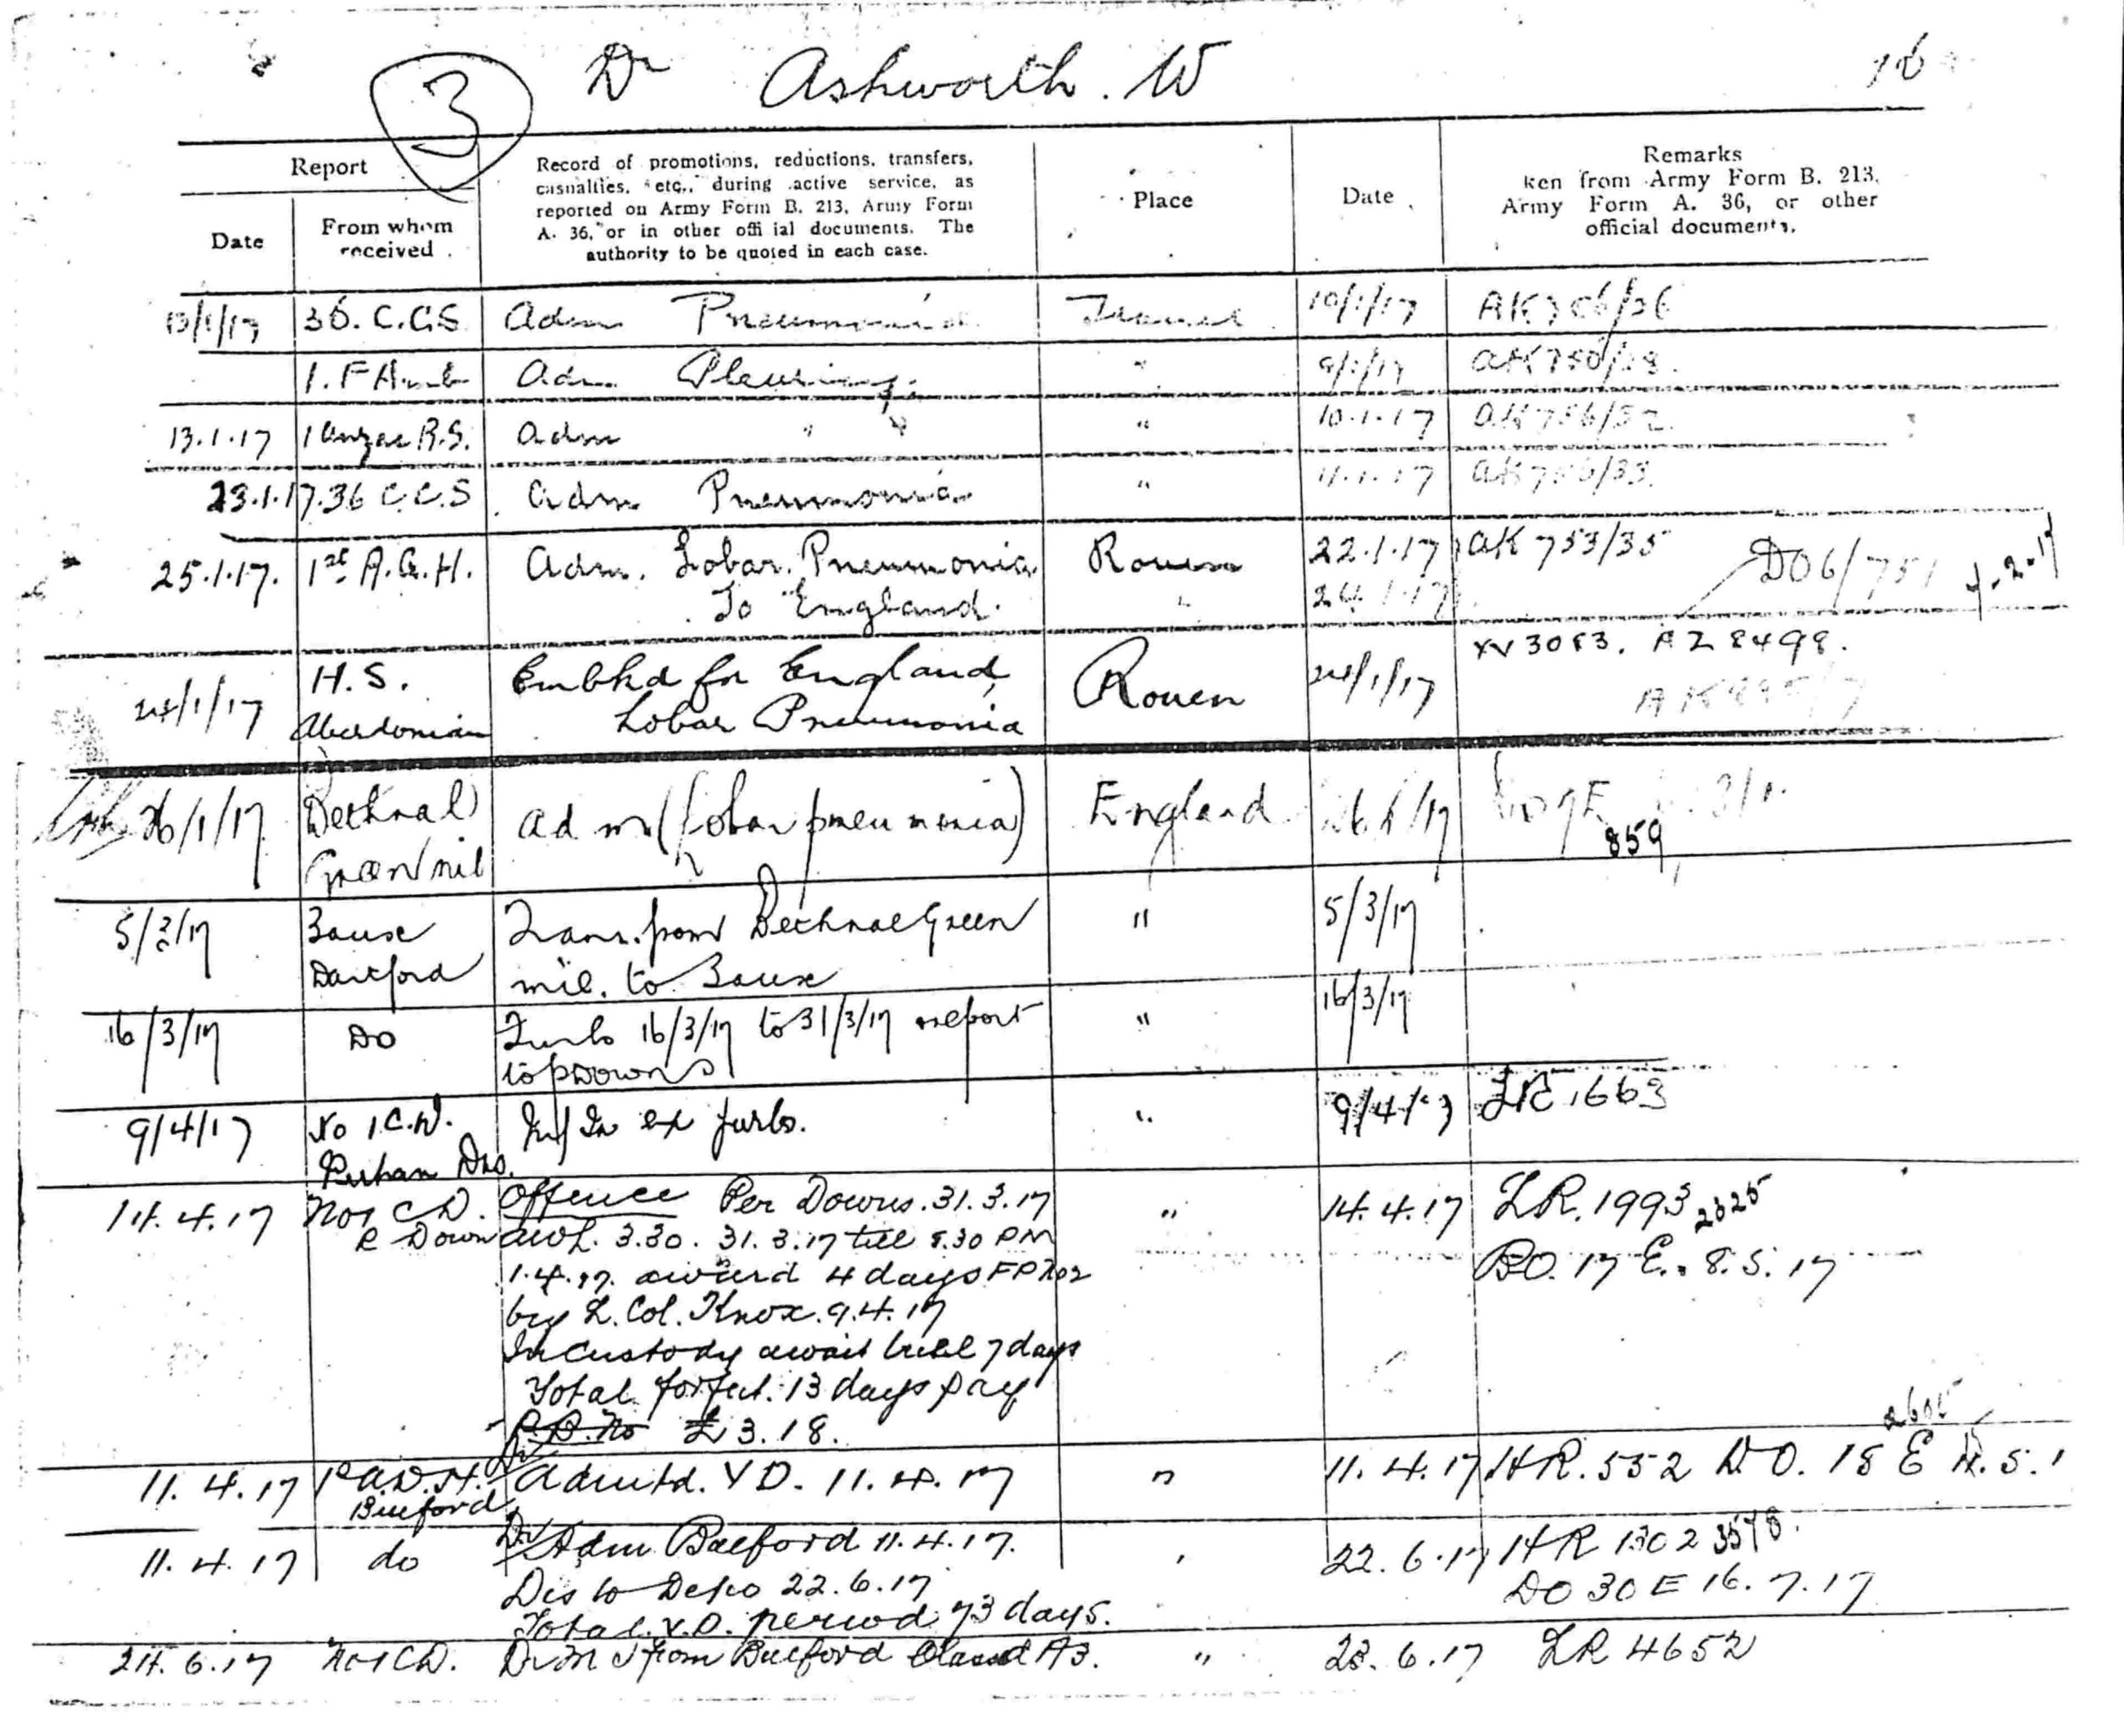 3 Dr Ashworth. W 16
Report
Record of promotions, reductions, transfers,
casualties, etc., during active service, as
reported on Army Form B. 213, Army Form
A. 36, or in other offi ial documents. The
authority to be quoted in each case.
Place
Date
Remarks
ken from Army Form B. 213,
Army Form A. 36, or other
official documents.
Date
From whom
received
36. C.C.S Adm Pneumonia 10/1/17
1. F Amb Adm Pleurisy " 9/1/17
13.1.17 1 Anzac R.S. Adm " " " 10.1.17
23.1.17. 36 C.C.S Adm Pneumonia " 11.1.17
25.1.17. 1st A.G.H. Adm. Lobar. Pneumonia Rouen 22.1.17 AK 753/35
To England. " 24.1.17
H.S. Embkd for England Rouen 24/1/17 W 3083. AZ 8498.
24/1/17 Aberdonian Lobar Pneumonia
26/1/17 Bethnal Adm (Lobar pneumonia) England 26/1/17
Green mil 859
5/3/17 3 aux Trans. from Bethnal Green " 5/3/17
Dartford mil. to 3 aux
16/3/17 Do Furlo 16/3/17 to 31/3/17 report " 16/3/17
to p Downs
9/4/17 No 1 C.D. M/In ex furlo. " 9/4/17 LR 1663
Perham Dns.
14.4.17 No 1 C D. Offence Per Downs. 31.3.17 " 14.4.17 LR. 1993 2325
P Down awl. 3.30. 31.3.17 till 8.30 PM
1.4.17. award 4 days FP No 2 BO. 17 E. 8.5.17
by L. Col. Knox. 9.4.17
In custody await trial 7 days
Total forfeit. 13 days pay
£3.18.
11.4.17 1st A.D.H. Admitd. VD. 11.4.17 " 11.4.17 HR. 552 DO. 18 E
Bulford
11.4.17 do Adm Bulford 11.4.17. 22.6.17 HR 1302
Dis to Depo 22.6.17 DO 30 E 16.7.17
Total. V.D. period 73 days.
24.6.17 No 1 CD. M I from Bulford Classd A3. " 23.6.17 LR 4652